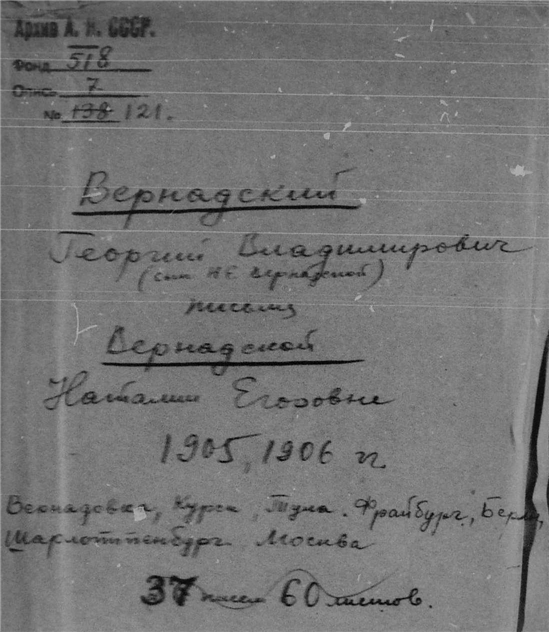 Архив А. Н. СССР.
Фонд 518
Опись 7
№ 138 121.
Вернадский
Георгий Владимирович
(сын НЕ Вернадской)
письма
Вернадской
Наталии Егоровне
1905, 1906 гг
Вернадовка, Курск, Тула. Фрайбург, Берлин,
Шарлоттенбург Москва
37 писем 60 листов.